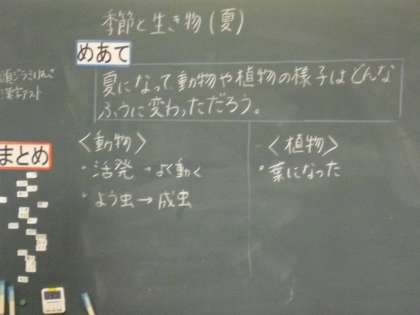 季節と生き物(夏)
めあて
夏になって、動物や植物の様子はどんな
ふうに変わっただろう。
まとめ
<動物>
・活発→よく動く
・よう虫→成虫
<植物>
・葉になった
漢字テスト